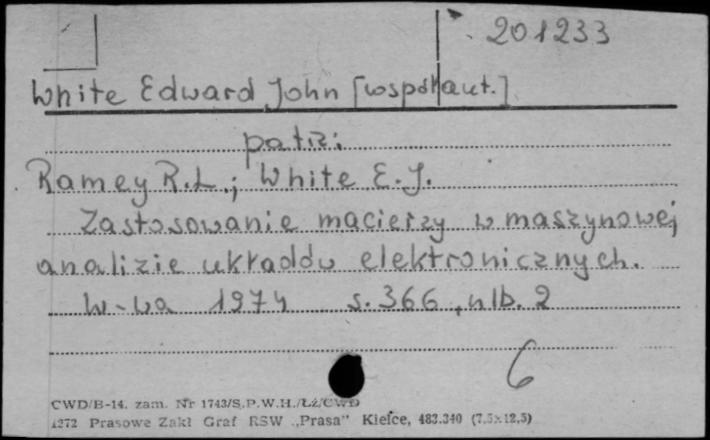 201233
White Edward John [współaut.]
patrz:
Ramey R.L.; White E.J.
Zastosowanie macierzy w maszynowej
analizie układów elektronicznych.
W-wa 1974 s. 366, nlb. 2
6
CWD/B-14. zam. Nr 1743/S.P.W.H./ŁŻ/CWD
1272 Prasowe Zakł Graf RSW „Prasa” Kielce, 483.340 (7,5×12,5)